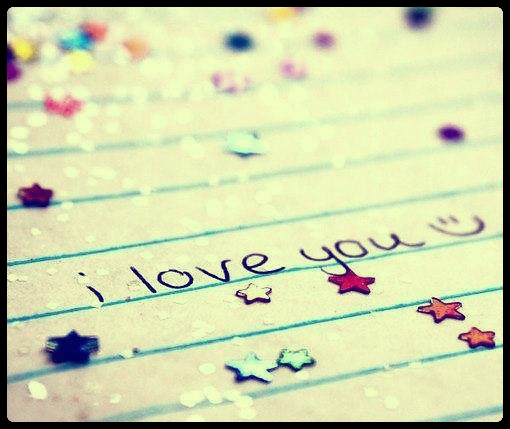 i love you =)